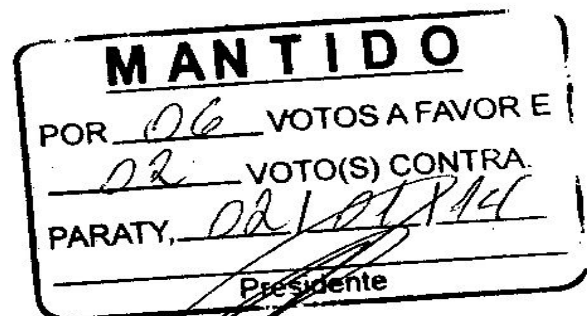 MANTIDO
POR 06 VOTOS A FAVOR E
02 VOTO(S) CONTRA.
PARATY, 02/ /14
Presidente